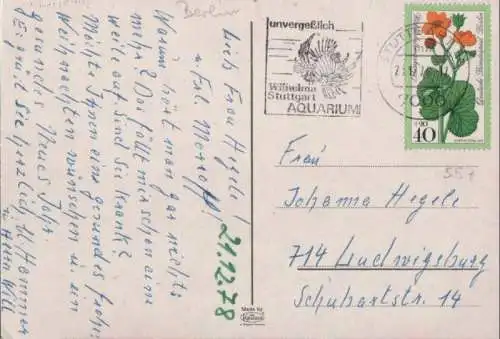 Berlin
Lieb Frau Hegele!
u. Frl.
Warum hört man gar nichts
mehr? Das fällt mir schon eine
weile auf. Sind Sie krank?
Möchte Ihnen eine gesundes frohes
Weihnachten wünschen u. ein
gesundes Neues Jahr.
Es grüßt Sie herzlich,
21.12.78
unvergeßlich
Wilhelma
Stuttgart
AQUARIUM
STUTTG
7000
+20
40
Frau
Johanna Hegele
714 Ludwigsburg
Schubartstr. 14
557
Made by